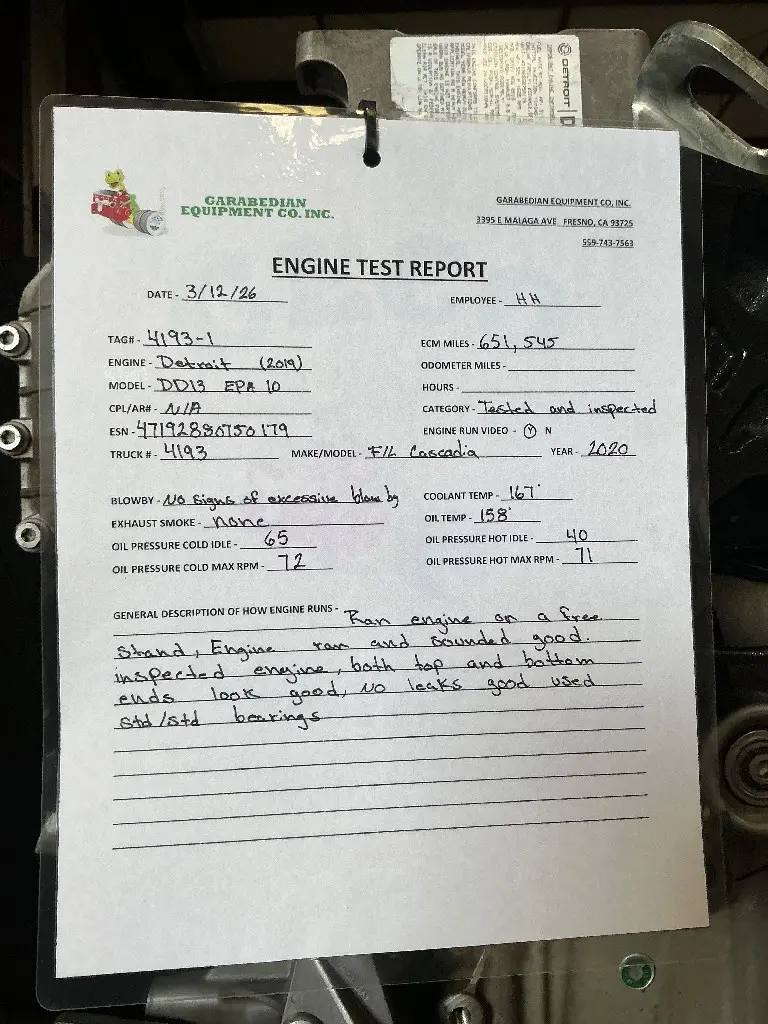 DETROIT
GARABEDIAN
EQUIPMENT CO. INC.
GARABEDIAN EQUIPMENT CO. INC.
3395 E MALAGA AVE FRESNO, CA 93725
559-743-7563
ENGINE TEST REPORT
DATE - 3/12/26 EMPLOYEE - HH
TAG# - 4193-1 ECM MILES - 651,545
ENGINE - Detroit (2019) ODOMETER MILES -
MODEL - DD13 EPA 10 HOURS -
CPL/AR# - N/A CATEGORY - Tested and inspected
ESN - 47192880750179 ENGINE RUN VIDEO - Y N
TRUCK # - 4193 MAKE/MODEL - F/L Cascadia YEAR - 2020
BLOWBY - No signs of excessive blow by COOLANT TEMP - 167°
EXHAUST SMOKE - none OIL TEMP - 158°
OIL PRESSURE COLD IDLE - 65 OIL PRESSURE HOT IDLE - 40
OIL PRESSURE COLD MAX RPM - 72 OIL PRESSURE HOT MAX RPM - 71
GENERAL DESCRIPTION OF HOW ENGINE RUNS - Ran engine on a free
stand, Engine ran and sounded good.
inspected engine, both top and bottom
ends look good, NO leaks good used
std/std bearings